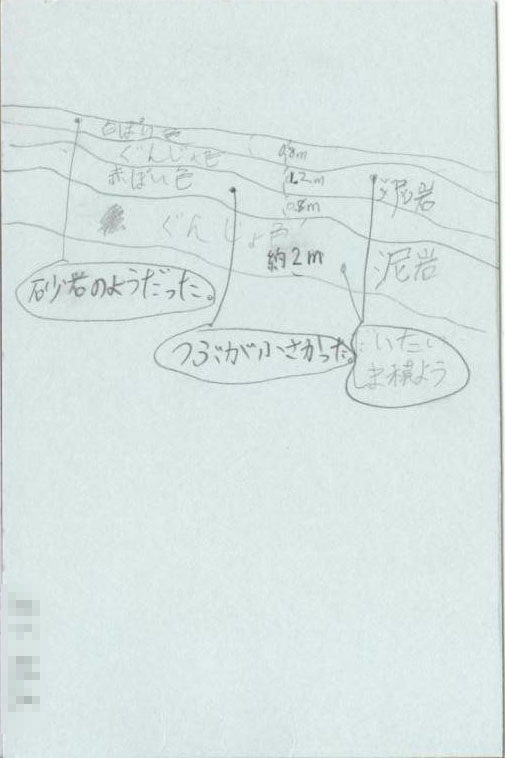 白ぽい色
ぐんじょう色
0.8m
赤ぽい色
1.2m
0.8m
泥岩
ぐんじょう
約2m
泥岩
砂岩のようだった。
つぶが小さかった。